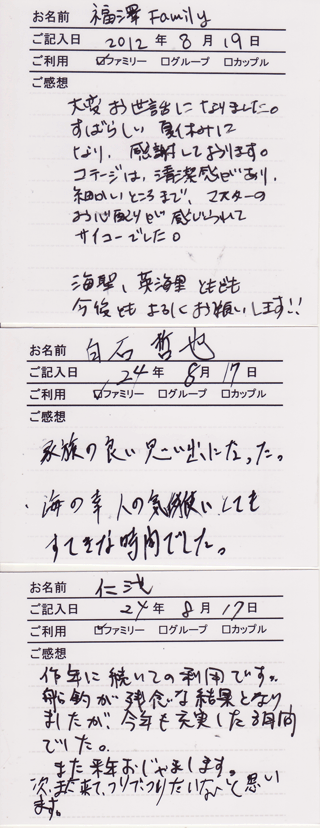 お名前 福澤 Family
ご記入日 2012 年 8 月 19 日
ご利用 ☑ファミリー □グループ □カップル
ご感想
大変お世話になりました。
すばらしい夏休みに
なり、感謝しております。
コテージは、清潔感があり、
細かいところまで、マスターの
お心配りが感じられて
サイコーでした。
海聖、英海里ともども
今後ともよろしくお願いします!!
お名前 白石 哲也
ご記入日 24 年 8 月 17 日
ご利用 ☑ファミリー □グループ □カップル
ご感想
家族の良い思い出になった。
海の幸 人の気使いとても
すてきな時間でした。
お名前 仁池
ご記入日 24 年 8 月 17 日
ご利用 ☑ファミリー □グループ □カップル
ご感想
作年に続いての利用です。
船釣が残念な結果となり
ましたが、今年も充実した時間
でした。
また来年おじゃまします。
次、また来て、つりでつりたいなと思い
ます。